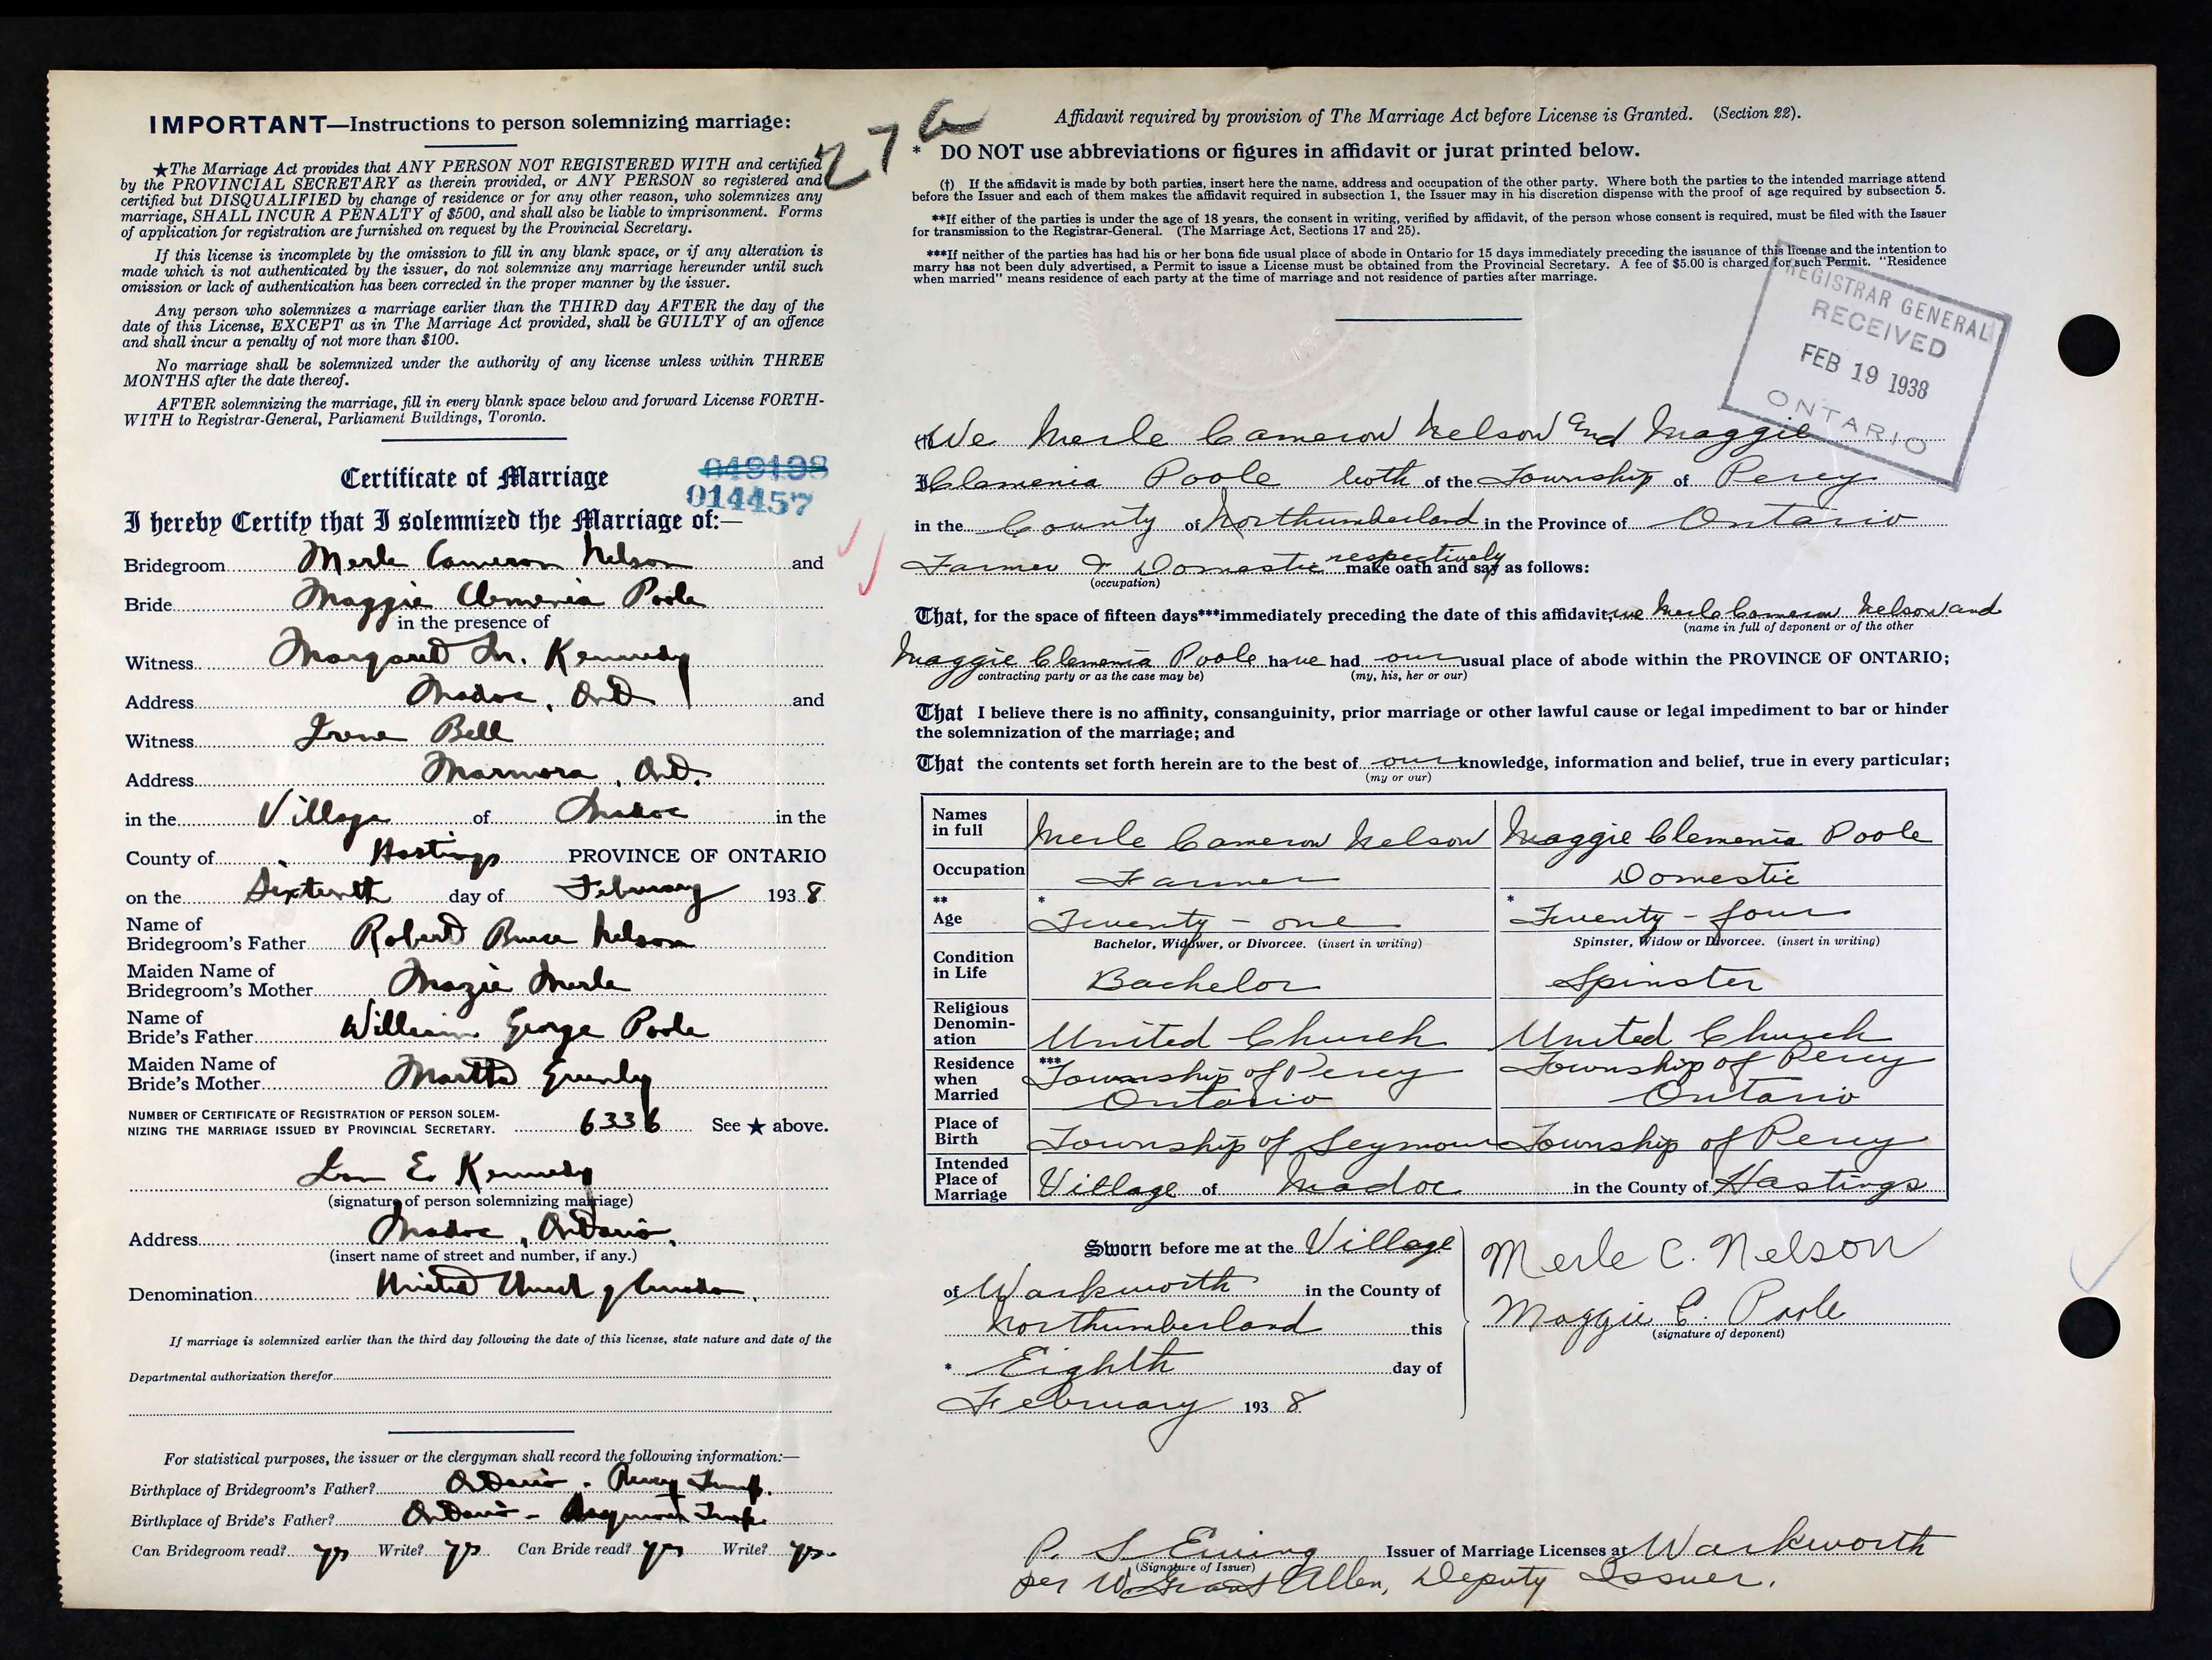 27 a
IMPORTANT—Instructions to person solemnizing marriage:
★The Marriage Act provides that ANY PERSON NOT REGISTERED WITH and certified
by the PROVINCIAL SECRETARY as therein provided, or ANY PERSON so registered and
certified but DISQUALIFIED by change of residence or for any other reason, who solemnizes any
marriage, SHALL INCUR A PENALTY of $500, and shall also be liable to imprisonment. Forms
of application for registration are furnished on request by the Provincial Secretary.
If this license is incomplete by the omission to fill in any blank space, or if any alteration is
made which is not authenticated by the issuer, do not solemnize any marriage hereunder until such
omission or lack of authentication has been corrected in the proper manner by the issuer.
Any person who solemnizes a marriage earlier than the THIRD day AFTER the day of the
date of this License, EXCEPT as in The Marriage Act provided, shall be GUILTY of an offence
and shall incur a penalty of not more than $100.
No marriage shall be solemnized under the authority of any license unless within THREE
MONTHS after the date thereof.
AFTER solemnizing the marriage, fill in every blank space below and forward License FORTH-
WITH to Registrar-General, Parliament Buildings, Toronto.
Certificate of Marriage
014457
I hereby Certify that I solemnized the Marriage of:—
Bridegroom Merle Cameron Nelson and
Bride Maggie Clemenia Poole
in the presence of
Witness Margaret M. Kennedy
Address Madoc, Ont and
Witness Irene Bell
Address Marmora, Ont.
in the Village of Madoc in the
County of Hastings PROVINCE OF ONTARIO
on the Sixteenth day of February 1938
Name of
Bridegroom's Father Robert Bruce Nelson
Maiden Name of
Bridegroom's Mother Mazie Merle
Name of
Bride's Father William George Poole
Maiden Name of
Bride's Mother Martha
NUMBER OF CERTIFICATE OF REGISTRATION OF PERSON SOLEM-
NIZING THE MARRIAGE ISSUED BY PROVINCIAL SECRETARY. 6336 See ★ above.
E. Kennedy
(signature of person solemnizing marriage)
Address Madoc, Ontario.
(insert name of street and number, if any.)
Denomination United Church of Canada.
If marriage is solemnized earlier than the third day following the date of this license, state nature and date of the
Departmental authorization therefor
For statistical purposes, the issuer or the clergyman shall record the following information:—
Birthplace of Bridegroom's Father? Ontario - Percy Twnp.
Birthplace of Bride's Father? Ontario - Seymour Twnp.
Can Bridegroom read? yes Write? yes Can Bride read? yes Write? yes.
Affidavit required by provision of The Marriage Act before License is Granted. (Section 22).
* DO NOT use abbreviations or figures in affidavit or jurat printed below.
(†) If the affidavit is made by both parties, insert here the name, address and occupation of the other party. Where both the parties to the intended marriage attend
before the Issuer and each of them makes the affidavit required in subsection 1, the Issuer may in his discretion dispense with the proof of age required by subsection 5.
**If either of the parties is under the age of 18 years, the consent in writing, verified by affidavit, of the person whose consent is required, must be filed with the Issuer
for transmission to the Registrar-General. (The Marriage Act, Sections 17 and 25).
***If neither of the parties has had his or her bona fide usual place of abode in Ontario for 15 days immediately preceding the issuance of this license and the intention to
marry has not been duly advertised, a Permit to issue a License must be obtained from the Provincial Secretary. A fee of $5.00 is charged for such Permit. "Residence
when married" means residence of each party at the time of marriage and not residence of parties after marriage.
REGISTRAR GENERAL
RECEIVED
FEB 19 1938
ONTARIO
(†) We Merle Cameron Nelson and Maggie
I Clemenia Poole both of the Township of Percy
in the County of Northumberland in the Province of Ontario
Farmer & Domestic respectively make oath and say as follows:
(occupation)
That, for the space of fifteen days***immediately preceding the date of this affidavit, we Merle Cameron Nelson and
(name in full of deponent or of the other
Maggie Clemenia Poole have had our usual place of abode within the PROVINCE OF ONTARIO;
contracting party or as the case may be) (my, his, her or our)
That I believe there is no affinity, consanguinity, prior marriage or other lawful cause or legal impediment to bar or hinder
the solemnization of the marriage; and
That the contents set forth herein are to the best of our knowledge, information and belief, true in every particular;
(my or our)
Names
in full Merle Cameron Nelson Maggie Clemenia Poole
Occupation Farmer Domestic
** * *
Age Twenty - one Twenty - four
Bachelor, Widower, or Divorcee. (insert in writing) Spinster, Widow or Divorcee. (insert in writing)
Condition
in Life Bachelor Spinster
Religious
Denomin-
ation United Church United Church
Residence
when
Married *** Township of Percy Ontario Township of Percy Ontario
Place of
Birth Township of Seymour Township of Percy
Intended
Place of
Marriage Village of Madoc in the County of Hastings
Sworn before me at the Village
of Warkworth in the County of
Northumberland this
* Eighth day of
February 1938
Merle C. Nelson
Maggie C. Poole
(signature of deponent)
P. S. Ewing Issuer of Marriage Licenses at Warkworth
(Signature of Issuer)
per W Grant Allen, Deputy Issuer.